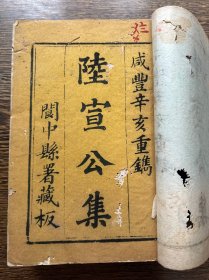 咸豐辛亥重鐫
陸宣公集
閬中縣署藏板